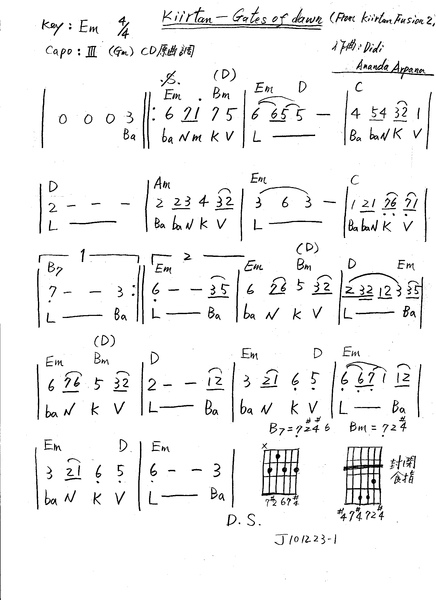 Key: Em 4/4 Kiirtan - Gates of dawn (From Kiirtan Fusion 2,
Capo: III (Gm) CD原曲調 作曲: Didi
Ananda Arpana
(D)
Em Bm Em D C
| 0 0 0 3 ||: 6 71 7 5 | 6 65 5 - | 4 54 32 1 |
Ba ba N m K V L Ba baN K V
D Am Em C
2 - - - | 2 23 4 32 | 3 6 3 - | 1 21 76 71 |
L Ba baN K V L Ba baN K V
1 2
(D)
B7 Em Em Bm D Em
7 - - 3 :|| 6 - - 35 | 6 76 5 32 | 2 32 12 3 35 |
L Ba L Ba ba N K V L Ba
(D)
Em Bm D Em D Em
6 76 5 32 | 2 - - 12 | 3 21 6 5 | 6 67 1 12 |
ba N K V L Ba ba N K V L Ba
B7 = 7 2# 4# 6 Bm = 7 2 4#
Em D Em
3 21 6 5 | 6 - - 3 |
ba N K V L Ba
x
封閉
食指
7 2# 6 7 4#
#4 7 #4 7 2 #4
D.S.
J101223-1